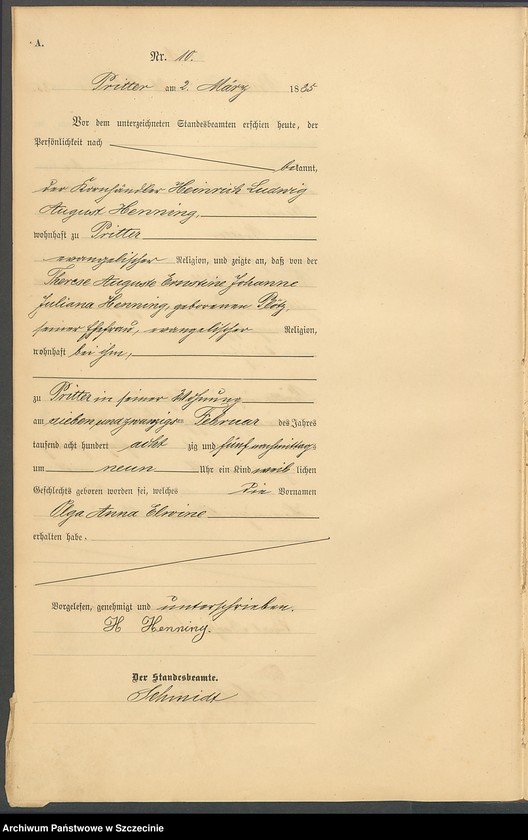 A.
Nr. 10.
Pritter am 2. März 1885
Vor dem unterzeichneten Standesbeamten erschien heute, der
Persönlichkeit nach
bekannt,
der Kornhändler Heinrich Ludwig
August Henning,
wohnhaft zu Pritter
evangelischer Religion, und zeigte an, daß von der
Therese Auguste Ernstine Johanne
Juliana Henning, geborenen Plötz,
seiner Ehefrau, evangelischer Religion,
wohnhaft bei ihm,
zu Pritter in seiner Wohnung
am siebenundzwanzigsten Februar des Jahres
tausend acht hundert achtzig und fünf nachmittags
um neun Uhr ein Kind weiblichen
Geschlechts geboren worden sei, welches die Vornamen
Olga Anna Elwine
erhalten habe.
Vorgelesen, genehmigt und unterschrieben.
H Henning.
Der Standesbeamte.
Schmidt
Archiwum Państwowe w Szczecinie